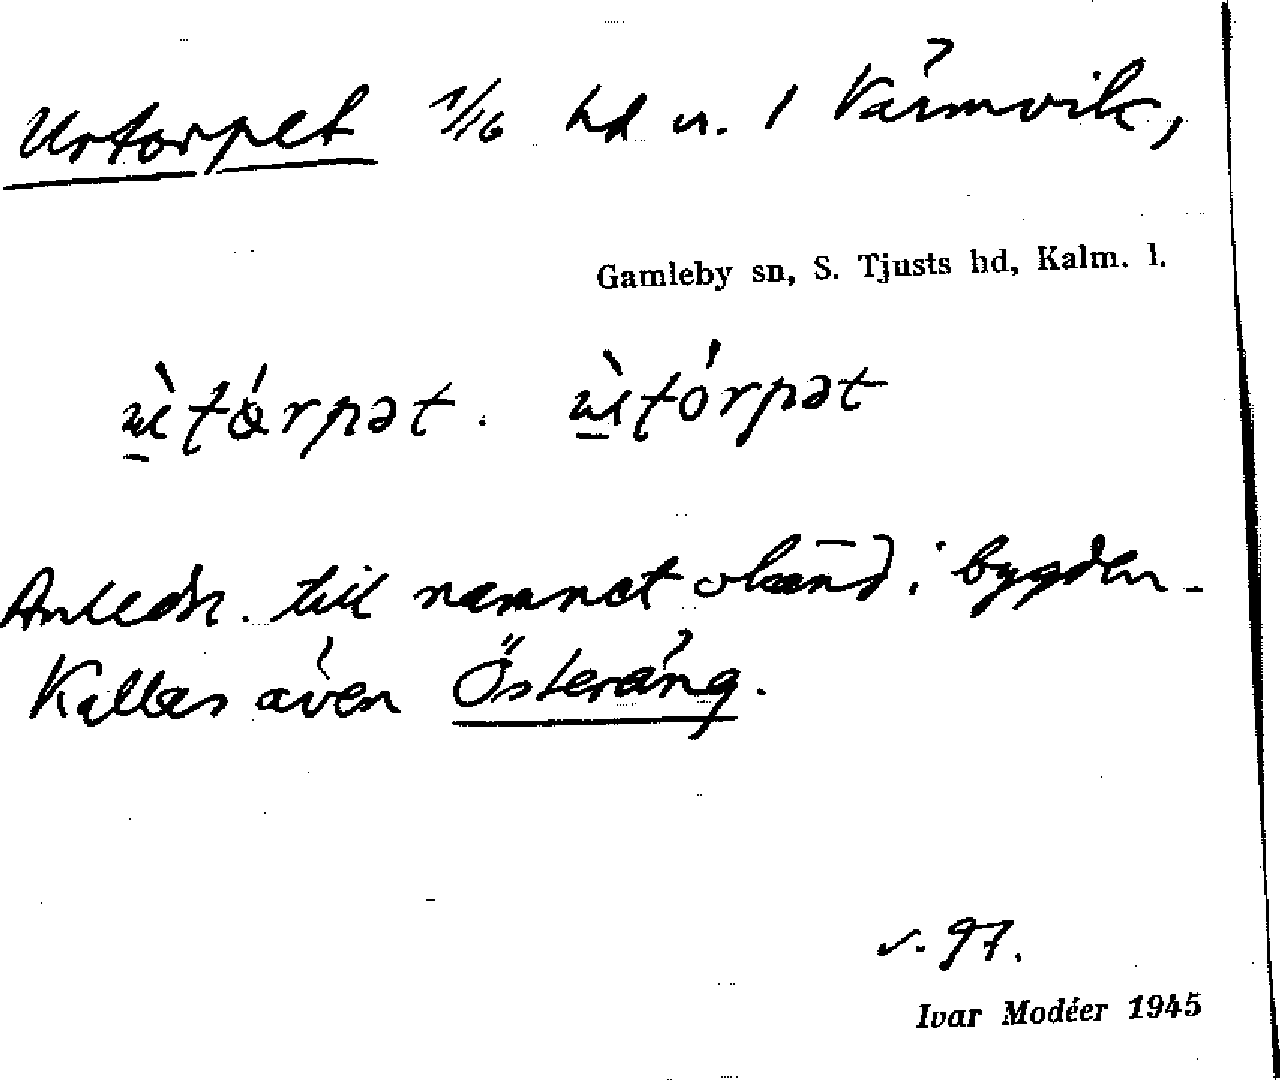 Urtorpet 1/16 hd nr. 1 Värmvik,
Gamleby sn, S. Tjusts hd, Kalm. l.
Anledn. till namnet okänd i bygden.
Kallas även Österäng.
s. 97.
Ivar Modéer 1945